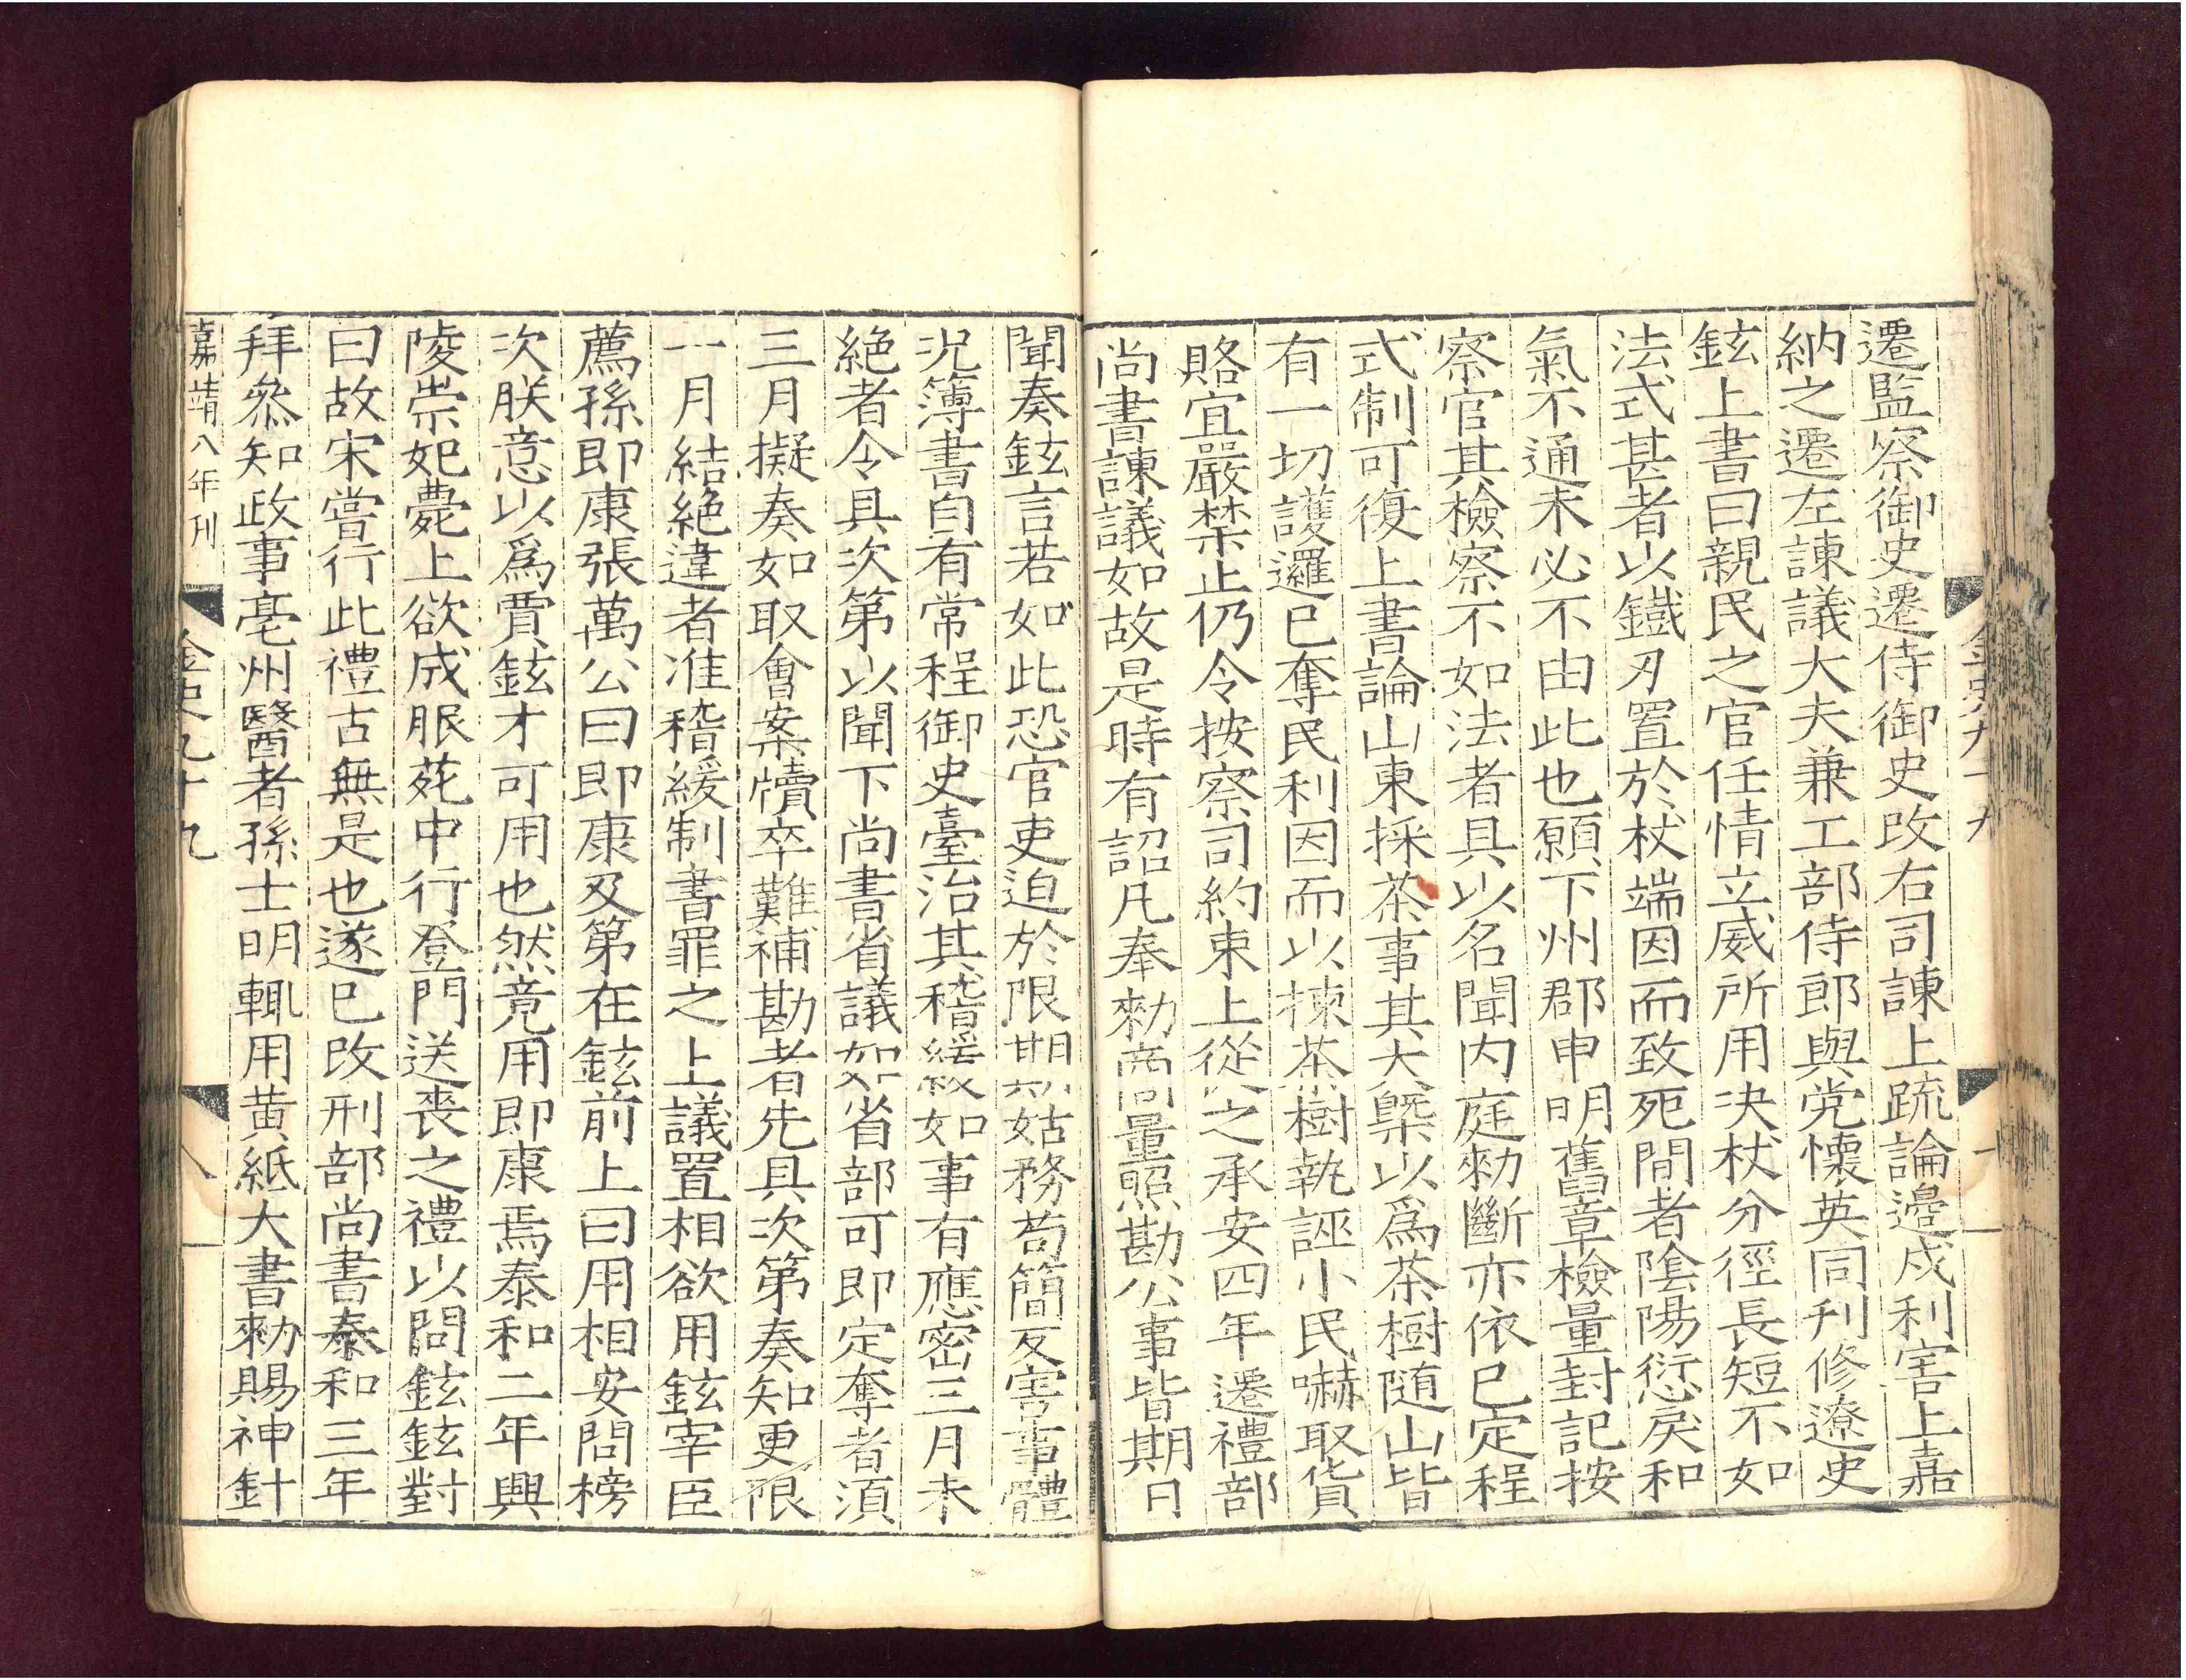 遷監察御史遷侍御史改右司諫上疏論邊戍利害上嘉
納之遷左諫議大夫兼工部侍郎與党懷英同刋修遼史
鉉上書曰親民之官任情立威所用決杖分徑長短不如
法式甚者以鐵刃置於杖端因而致死間者隂陽愆戾和
氣不通未必不由此也願下州郡申明舊章檢量封記按
察官其檢察不如法者具以名聞内庭勑斷亦依已定程
式制可復上書論山東採茶事其大槩以為茶樹随山皆
有一切護邏已奪民利因而以揀茶樹執誣小民嚇取貨
賂宜嚴禁止仍令按察司約束上從之承安四年遷禮部
尚書諫議如故是時有詔凡奉勑商量照勘公事皆期日
聞奏鉉言若如此恐官吏迫於限期姑務苟簡反害事體
况簿書自有常程御史臺治其稽緩如事有應密三月未
絶者令具次第以聞下尚書省議如省部可即定奪者須
三月擬奏如取會案牘卒難補勘者先具次第奏知更限
一月結絶違者准稽緩制書罪之上議置相欲用鉉宰臣
薦孫即康張萬公曰即康及第在鉉前上曰用相安問榜
次朕意以爲賈鉉才可用也然竟用即康焉泰和二年興
陵崇妃薨上欲成服苑中行登門送喪之禮以問鉉鉉對
曰故宋嘗行此禮古無是也遂已改刑部尚書泰和三年
拜叅知政事亳州醫者孫士明輒用黄紙大書勑賜神針
嘉靖八年刋 金史九十九 八